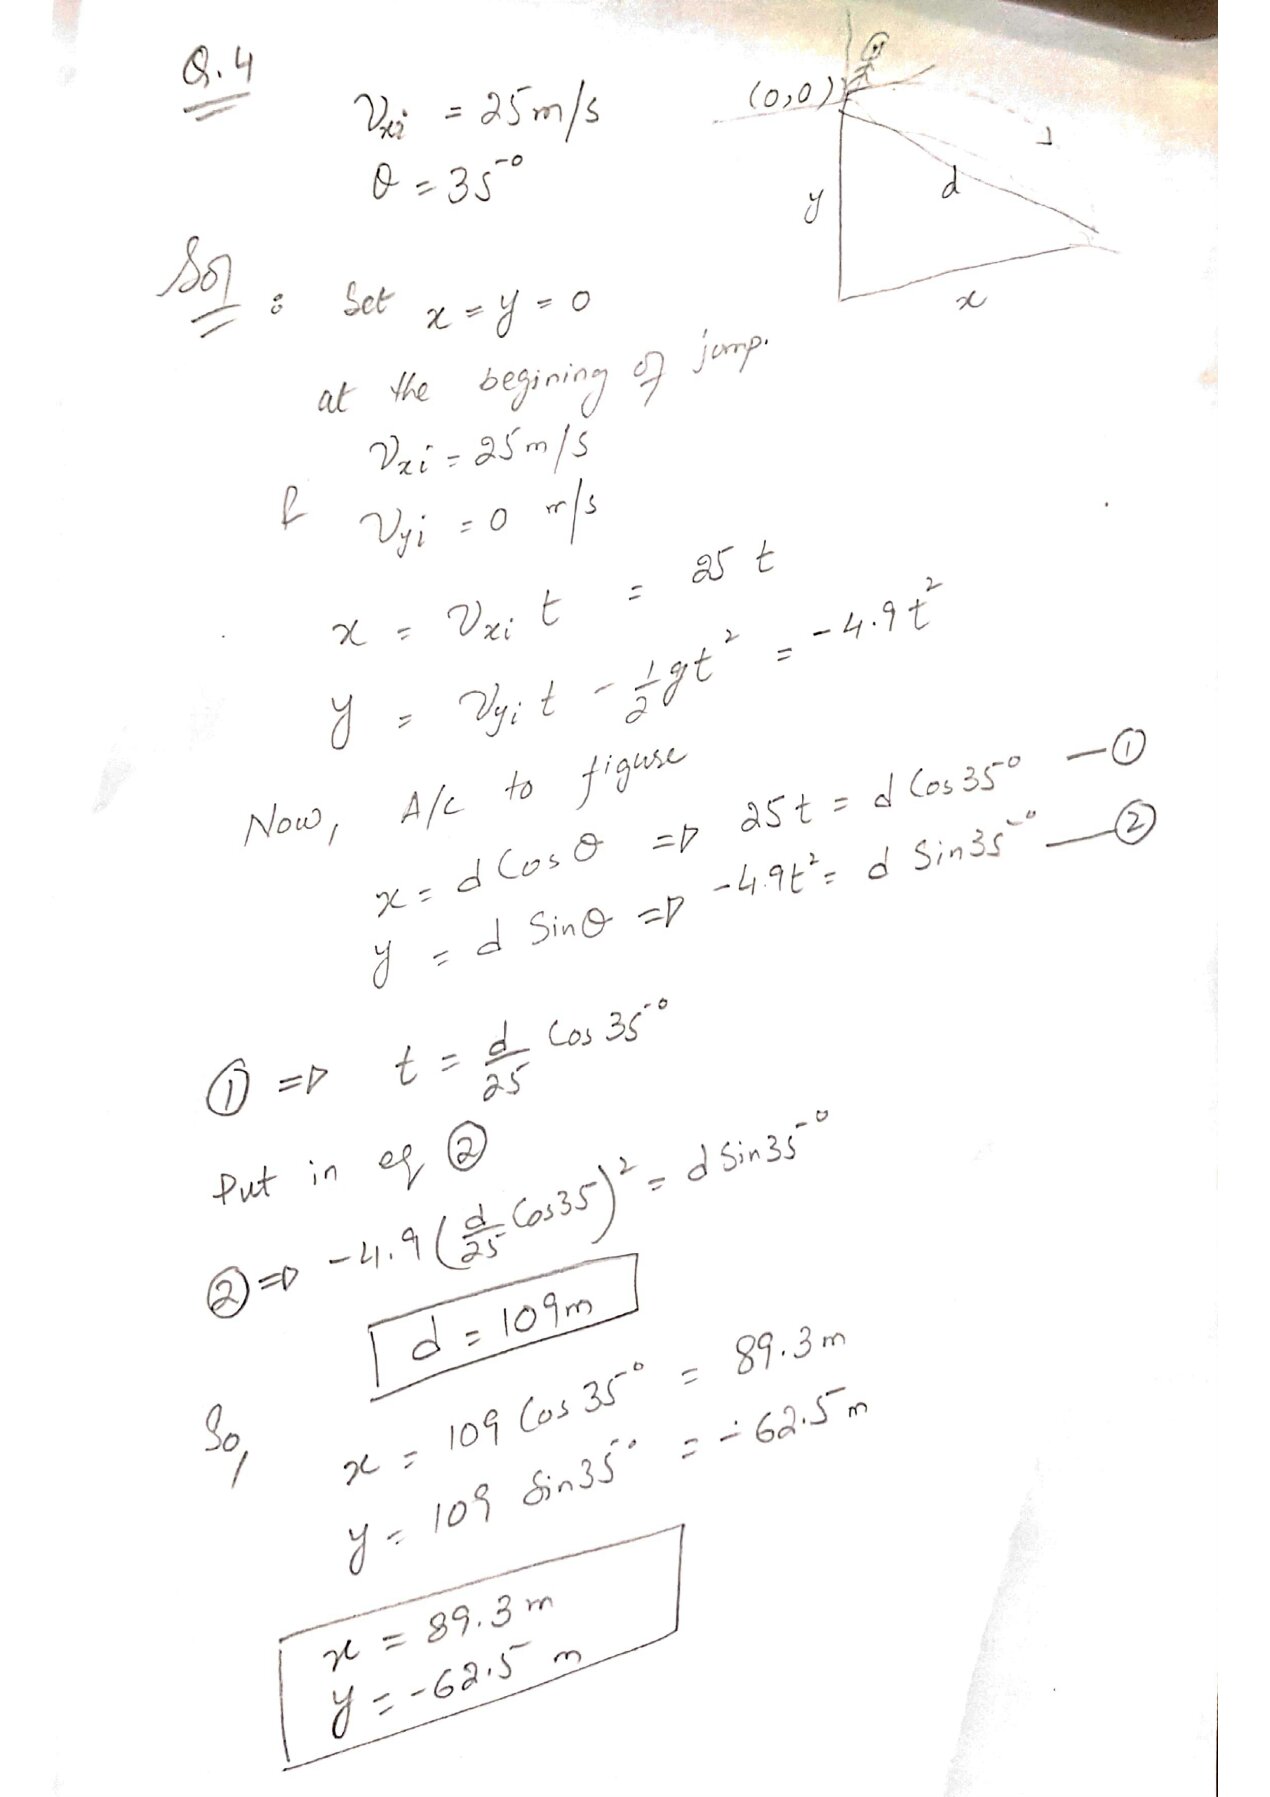 Q.4
(0,0)
vxi = 25m/s
θ = 35°
d
y
x
Sol : Set x = y = 0
at the begining of jump.
vxi = 25m/s
& vyi = 0 m/s
x = vxi t = 25 t
y = vyi t - 1/2 gt² = -4.9 t²
Now, A/c to figure
x = d Cos θ ⇒ 25t = d Cos 35° — ①
y = d Sinθ ⇒ -4.9t² = d Sin35° — ②
① ⇒ t = d/25 Cos 35°
Put in eq ②
② ⇒ -4.9 (d/25 Cos35)² = d Sin35°
d = 109m
So, x = 109 Cos 35° = 89.3 m
y = 109 Sin35° = -62.5 m
x = 89.3 m
y = -62.5 m